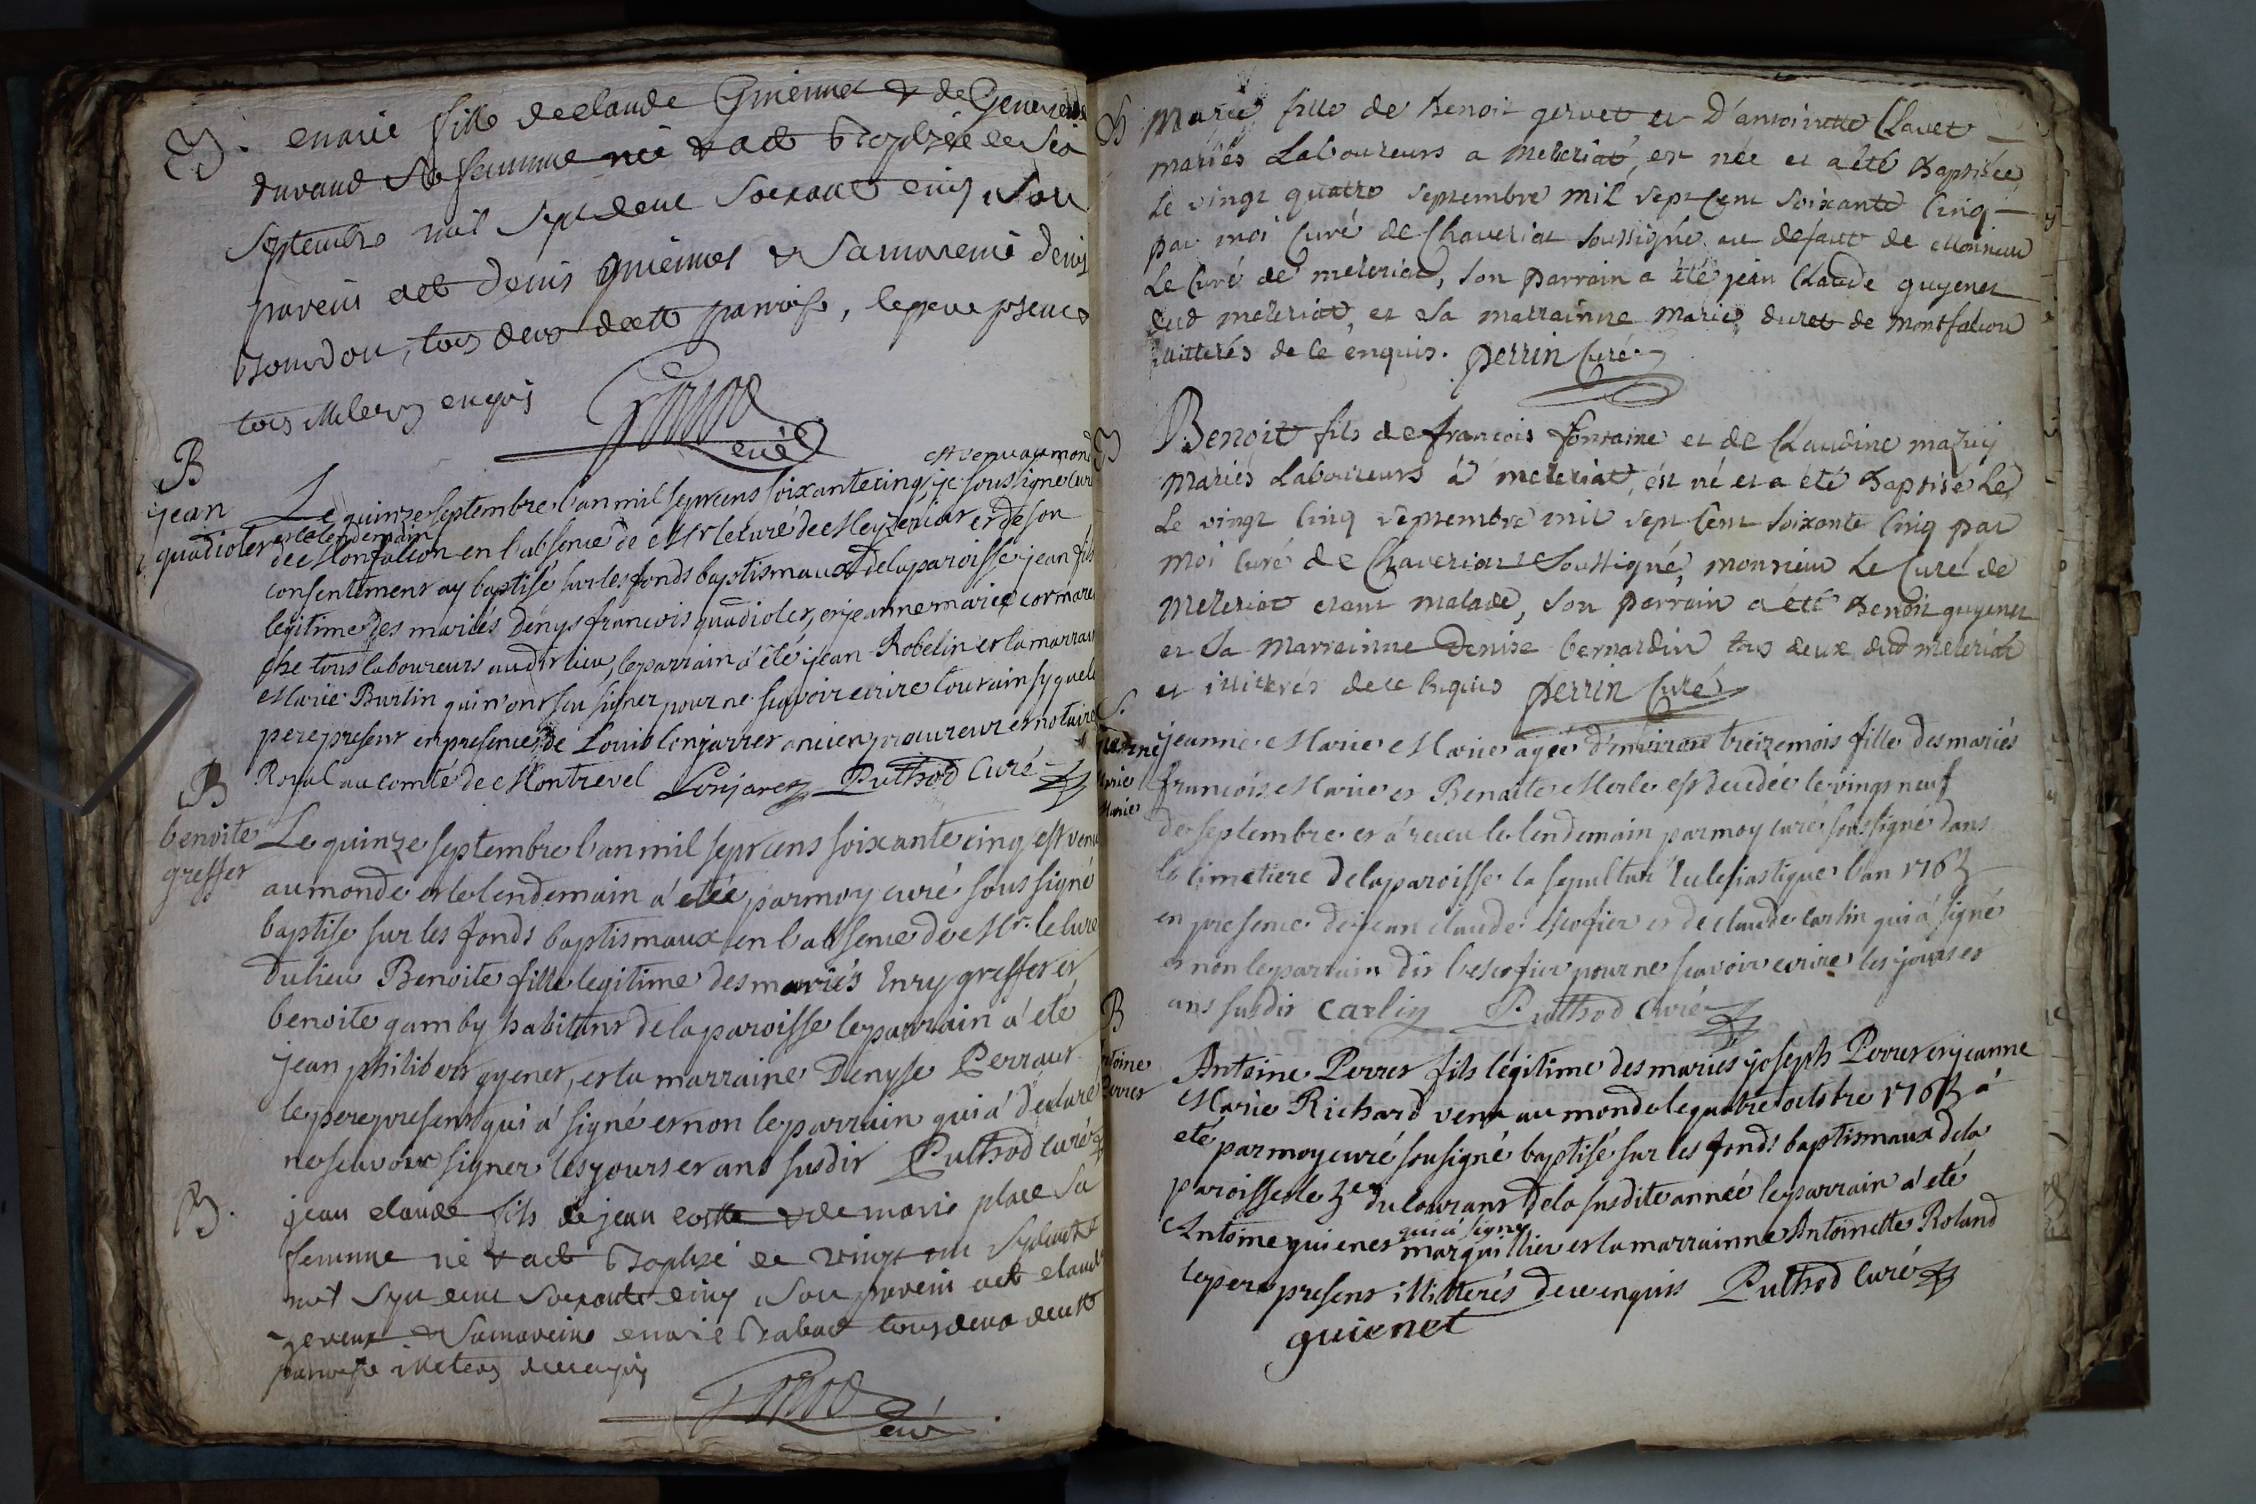 B.
Marie fille de Claude Guienet & de Genevieve
Durand sa femme née & a eté Baptizée le six
septembre mil sept cent soixante cinq, son
parein a eté Denis Guienet & sa mareine Denise
tous deux de cette paroisse, le pere present
tous illeterez enquis
curé
B
jean
quadioler
est venu au monde
Le quinze septembre l'an mil sept cens soixante cinq, je soussigné curé
et le lendemain
de Monfalcon en l'absence de Mr le curé de Mezeriat et de son
consentement ay baptisé sur les fonds baptismaux de la paroisse jean fils
legitime des mariés Denys francois quadioler, et jeanne marie cormare
che tous laboureurs audit lieu, le parrain a été jean Robelin et la marraine
Marie Burtin qui n'ont seu signer pour ne scavoir ecrire tout ainsy que le
pere present en presence de Louis Lonjarret ancien procureur et notaire
Royal au comté de Montrevel Lonjaret Puthod Curé
B
benoite
greffet
Le quinze septembre l'an mil sept cens soixante cinq est venue
au monde et le lendemain a eté par moy curé soussigné
baptise sur les fonds baptismaux en l'absence de Mr. le curé
du lieu Benoite fille legitime des mariés Enry greffet et
benoite gamby habitans de la paroisse le parrain a eté
jean philibert gyenet, et la marraine Denyse Perraut
le pere present qui a signé et non le parrain qui a declaré
ne scavoir signer les jours et ans susdit Puthod curé
B.
jean claude fils de jean cotte & de marie place sa
femme né & a eté Baptizé le vingt un septembre
mil sept cent soixante cinq son parein a eté claude
& sa mareine marie Rabat tous deux de cette
paroisse illeterez de ce enquis
curé
B
Marie fille de Benoit gervet et D'antoinette Clavet
mariés Laboureurs a Mezeriat, est née et a été Baptisée
Le vingt quatre septembre mil sept Cent soixante Cinq
par moi Curé de Chaveriat soussigné au defaut de Monsieur
Le Curé de mezeriat, son parrain a été jean Claude guyenet
dud mezeriat, et sa marrainne Marie duret de Montfalcon
illitterés de ce enquis. perrin Curé
B
Benoit fils de francois fontaine et de Claudine mazuy
Mariés Laboureurs à mezeriat, est né et a été Baptisé Le
Le vingt Cinq septembre mil sept Cent soixante Cinq par
moi Curé de Chaveriat Soussigné, monsieur Le Curé de
Mezeriat etant malade, son parrain a été Benoit guyenet
et sa Marrainne Denise bernardin tous deux dud mezeriat
et illiterés de ce enquis perrin Curé
S.
jeanne
Marie
Marie
jeanne Marie Marie agée d'environ treize mois fille des mariés
francois Marie et Benoite Merle est decedée le vingt neuf
de septembre et a reçu le lendemain par moy curé soussigné dans
le cimetiere de la paroisse la sepulture Eclesiastique l'an 1765
en presence de jean claude escofier et de claude carlin qui a signé
et non le parrain dit l'escofier pour ne scavoir ecrire les jours et
ans susdit Carlin Puthod Curé
B
Antoine
Perret
Antoine Perret fils légitime des mariés joseph Perret et jeanne
Marie Richard venu au monde le quatre octobre 1765 a
eté par moy curé sousigné baptisé sur les fonds baptismaux de la
paroisse le 5e du courant de la susdite année le parrain a eté
qui a signé
Antoine guienet marguillier et la marrainne Antoinette Roland
le pere present illitterés de ce enquis Puthod Curé
guienet